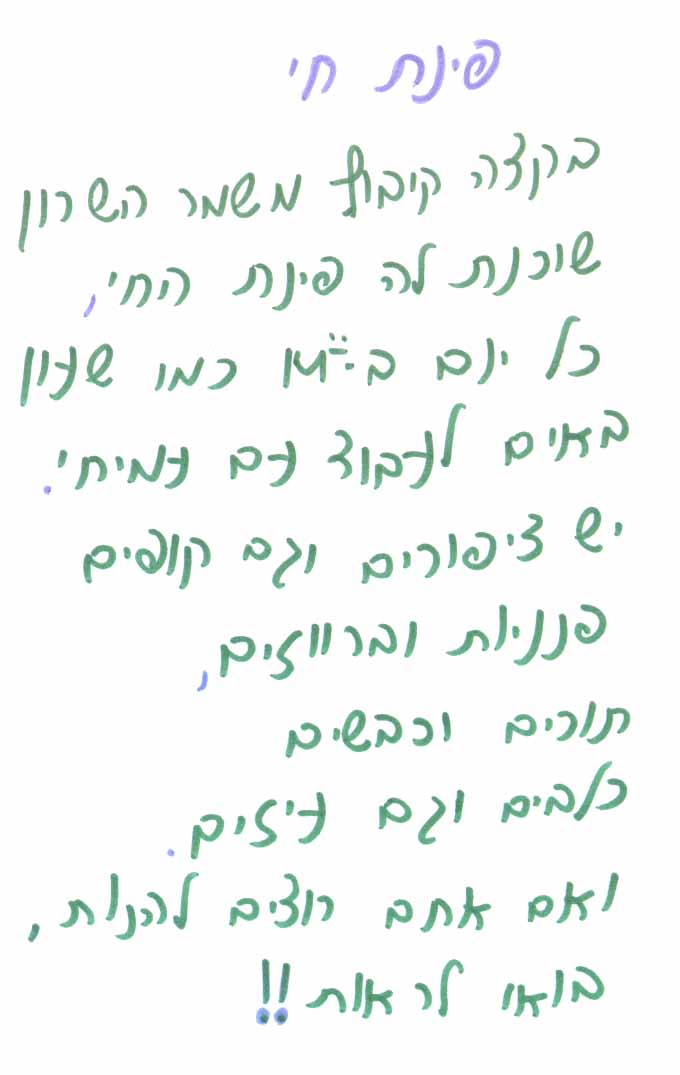 פינת חי
בקצה קיבוץ משמר השרון
שוכנת לה פינת החי,
כל יום כמו שעון
באים לעבוד עם עמיחי.
יש ציפורים וגם קופים
פנניות וברווזים,
תורים וכבשים
כלבים וגם עיזים.
ואם אתם רוצים להנות,
בואו לראות!!